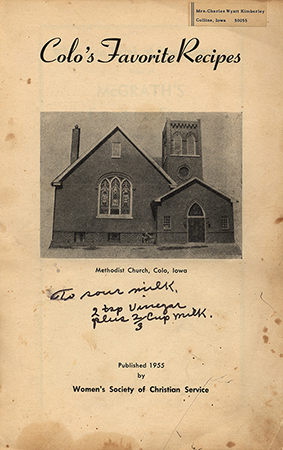 Mrs. Charles Wyatt Kimberley
Collins, Iowa 50055
Colo's Favorite Recipes
McGRATH'S
Methodist Church, Colo, Iowa
To sour milk.
2 tsp Vinegar
plus 2/3 Cup milk.
Published 1955
by
Women's Society of Christian Service